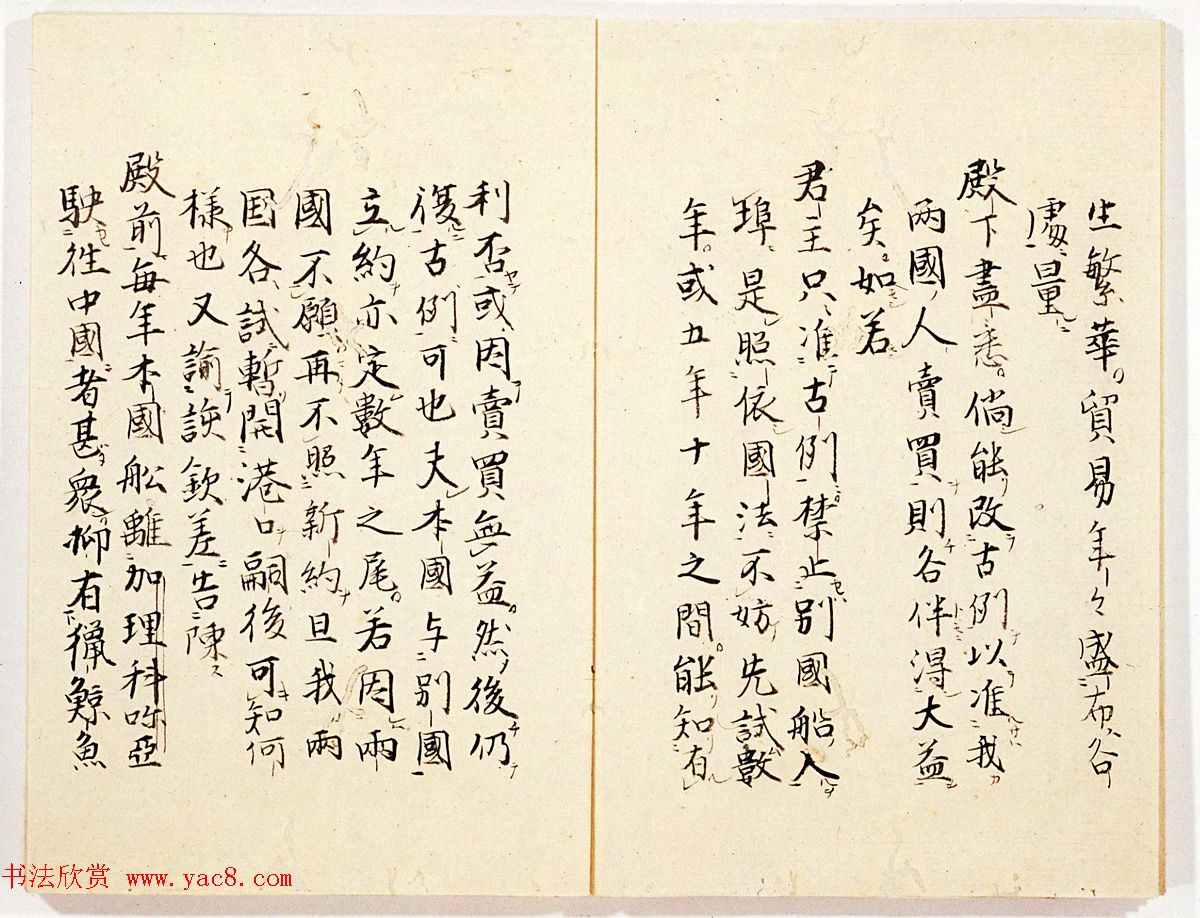 生繁華貿易年々盛布各
處量
殿下盡悉倘能改古例以准我
両國人賣買則各伴得大益
矣如若
君主只准古例禁止別國船入
埠是照依國法不妨先試數
年或五年十年之間能知有
利否或因賣買無益然後仍
復古例可也夫本國与別國
立約亦定數年之尾若因両
國不願再不照新約且我両
国各試暫開港口嗣後可知何
様也又諭該欽差告陳
殿前每年本國舩離加理科呅亞
駛徃中國者甚衆抑有獵鯨魚
书法欣赏 www.yac8.com